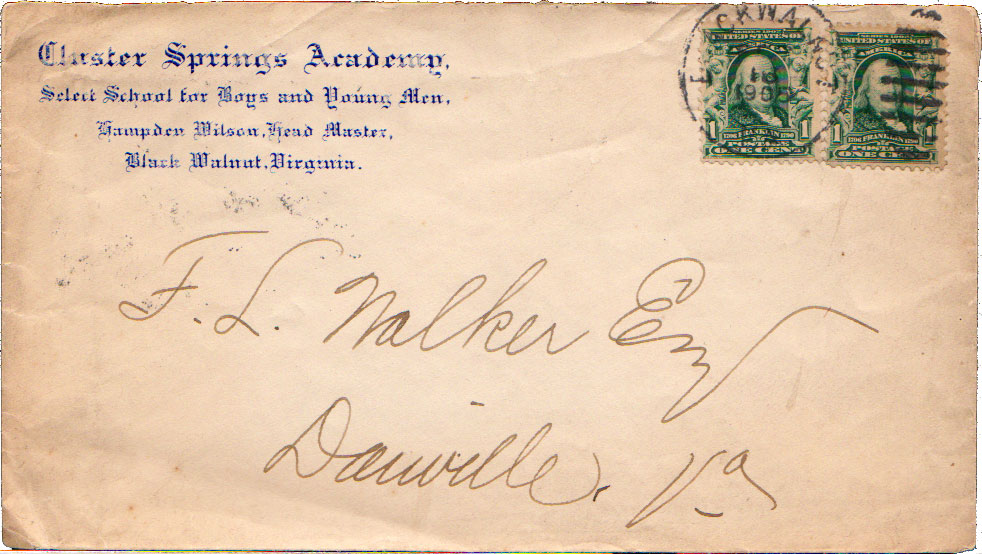 Cluster Springs Academy,
Select School for Boys and Young Men,
Hampden Wilson, Head Master,
Black Walnut, Virginia.
CKWAL
1905
SERIES 1902
UNITED STATES OF
AMERICA
1 FRANKLIN 1
1706 1790
POSTAGE
ONE CENT
SERIES 1902
UNITED STATES OF
AMERICA
1 FRANKLIN 1
1706 1790
POSTAGE
ONE CENT
F. L. Walker Esq
Danville, Va